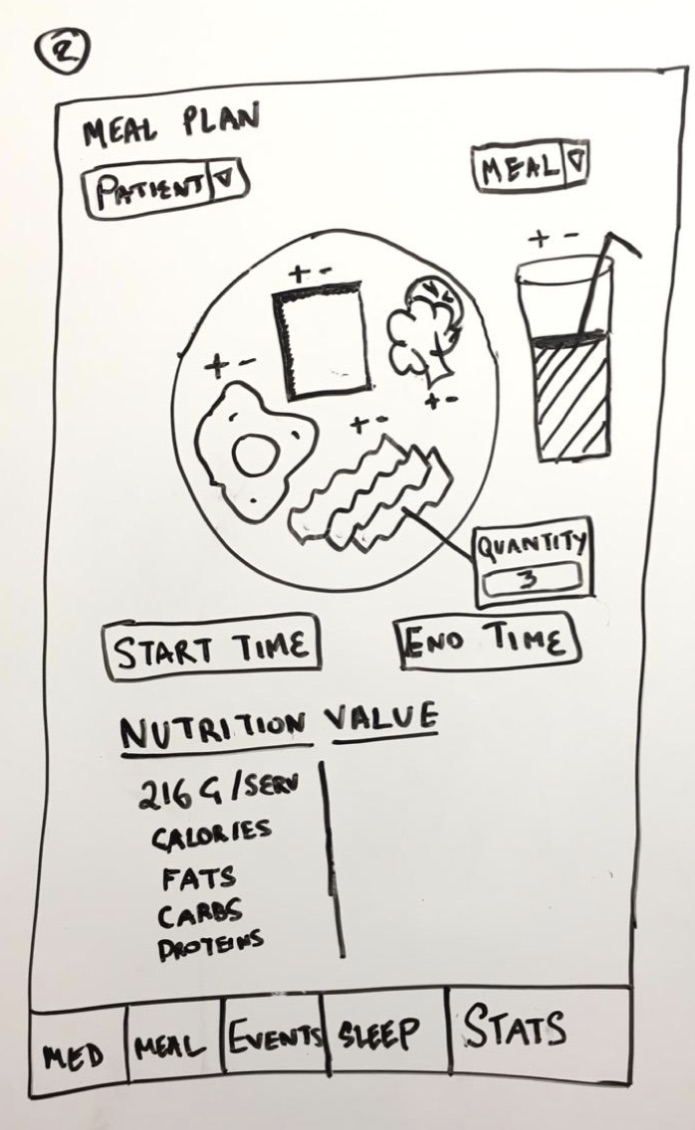 2
MEAL PLAN
PATIENT
MEAL
+ -
+ -
+ -
+ -
+ -
QUANTITY
3
START TIME
END TIME
NUTRITION VALUE
216 G/SERV
CALORIES
FATS
CARBS
PROTEINS
MED
MEAL
EVENTS
SLEEP
STATS